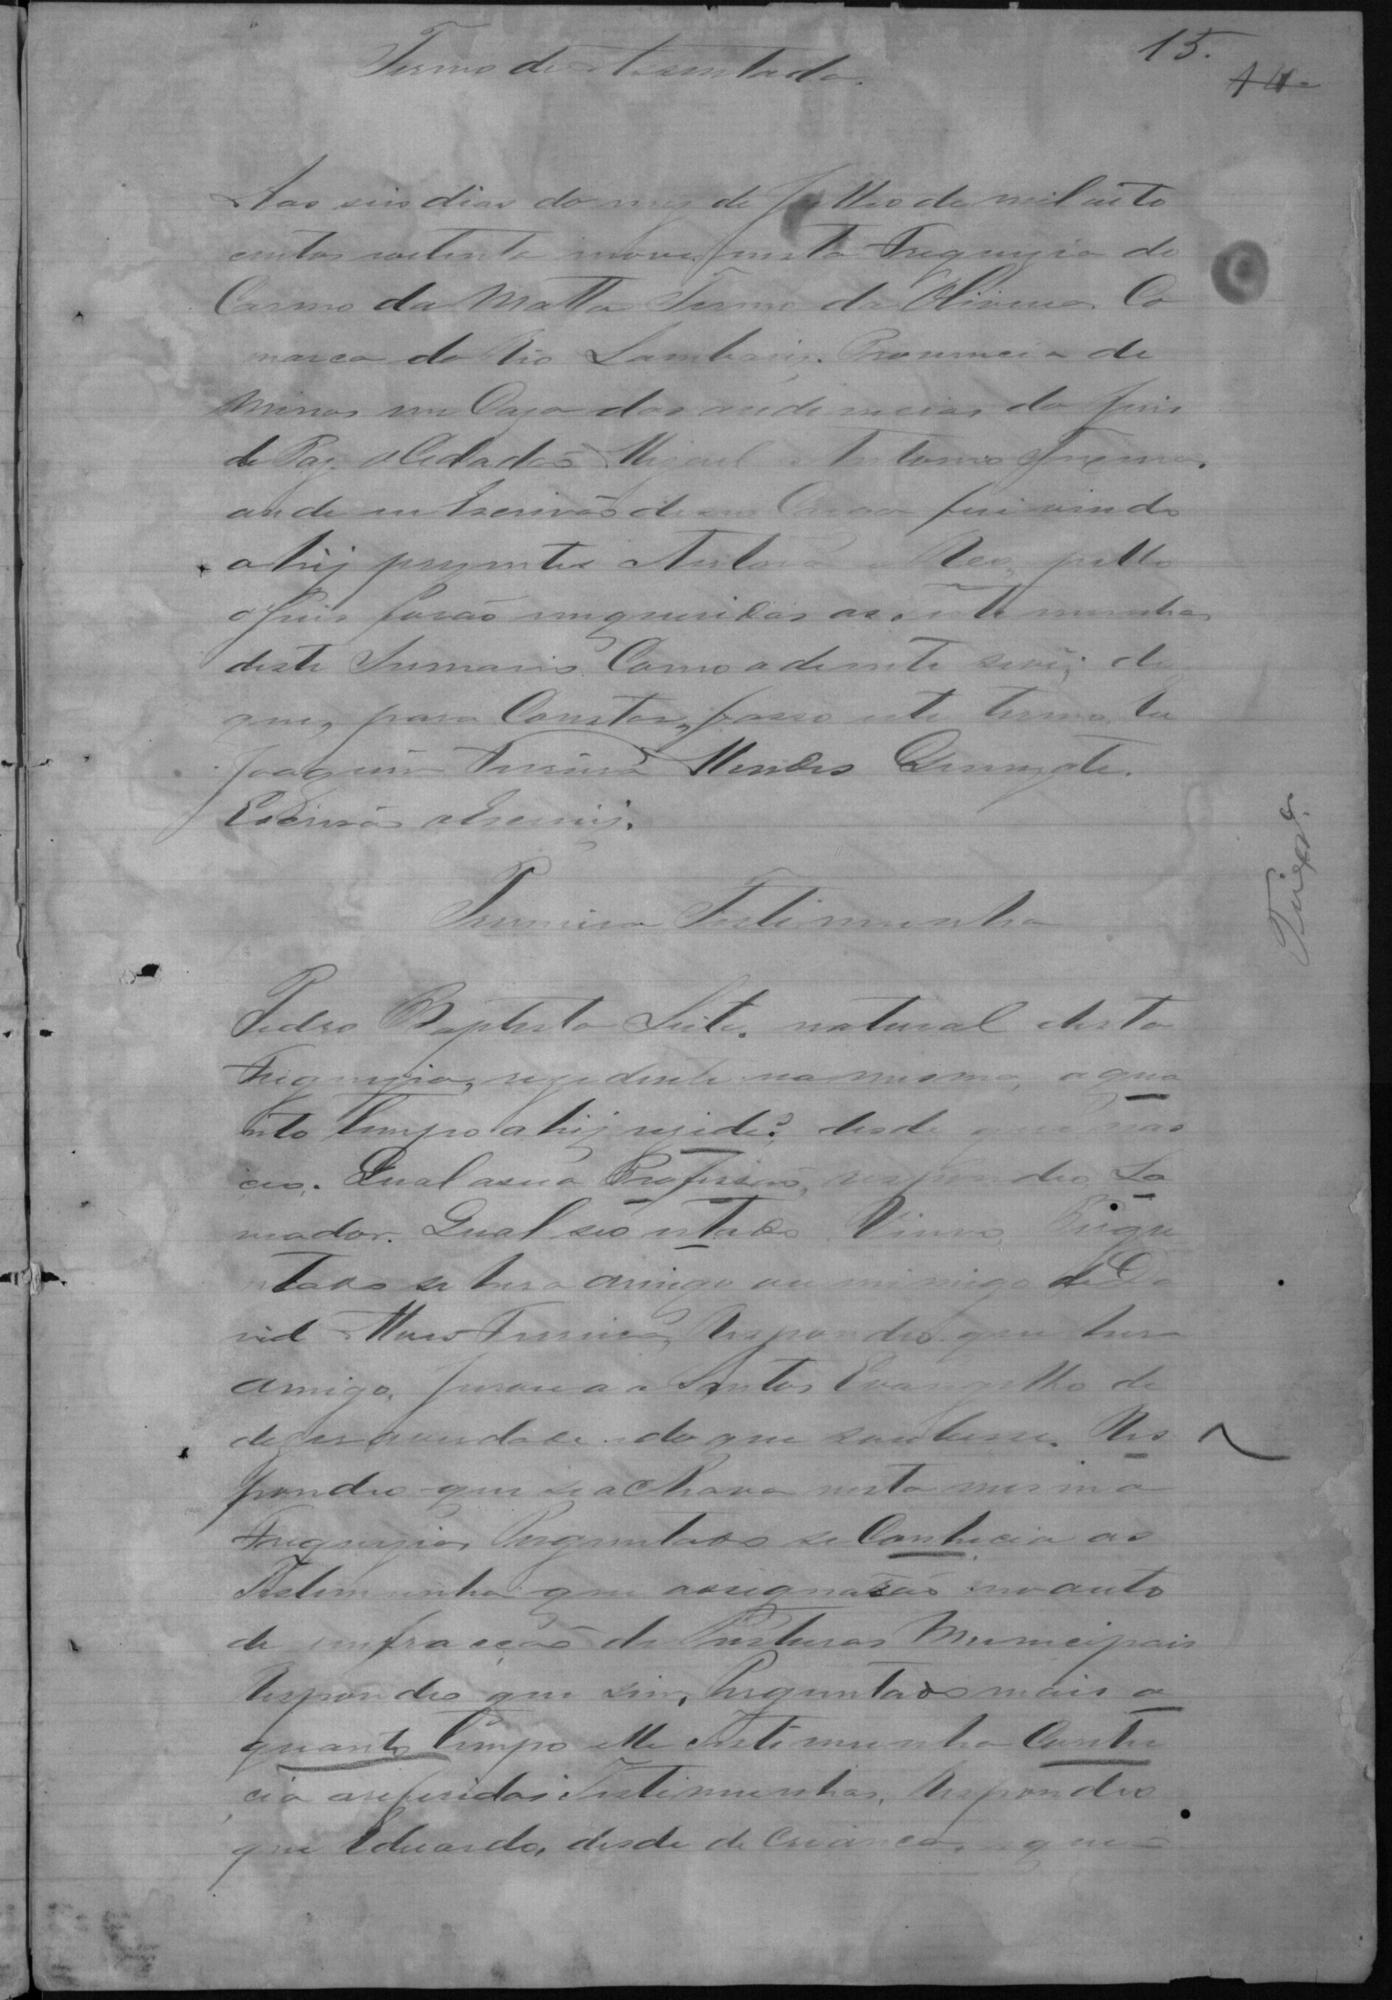 15.
14
Termo de Assentada.
Aos seis dias do mez de Julho de mil oito
centos setenta nove, nesta Freguezia do
Carmo da Matta Termo da Oliveira Co
marca do Rio Lambary. Provincia de
Minas em Caza das audiencias do Juis
de Paz o Cidadão Miguel Antonio
onde eu Escrivão de seu Cargo fui vindo
ahij prezentes Autor e Reo, pello
o Juis forão inqueridas as testemunhas
deste Sumario Como adeante se vê; de
que, para Constar, passo este termo, Eu
Joaquim Ferreira Mendes
Escrivão o Escrevi.
Primeira Testimunha
Pedro Baptista Leite. natural desta
Freguezia, rezidente na mesma, a qua
nto tempo ahij rezide? desde que nas
ceo. Qual a sua Profissão, respondeo La
vrador. Qual seo estado Viuvo, Pergu
ntado se hera amigo ou inimigo de Da
vid Ferreira, Respondeo que hera
amigo. Jurou aos Santos Evangelhos de
dezer a verdade do que soubesse. Res
pondeo que se achava nesta mesma
Freguezia, Perguntado se Conhecia as
Testimunha que assignarão no auto
de infracção de Posturas Municipais
Respondeo que sim, Perguntado mais a
quanto tempo elle Testimunha Conhe
cia as referidas Testimunhas, Respondeo
que Eduardo, desde de Criança, e que